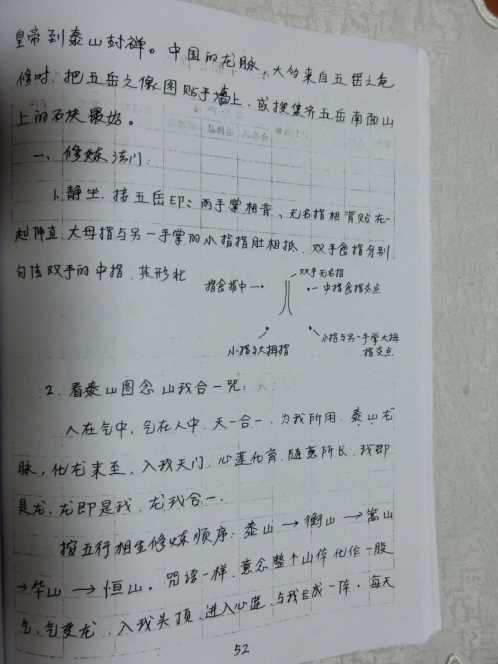 皇帝到泰山封禅。中国的龙脉，大约来自五岳之色
修时，把五岳之像图贴于墙上，或搜集齐五岳南面山
上的石块最好。
一、修炼法门：
1、静坐，掐五岳印：两手掌相背、无名指相背贴在一
起伸直，大母指与另一手掌的小指指肚相抵，双手食指分别
勾住双手的中指，其形状
双手无名指
指食指中
中指食指交点
小指与大拇指
小指与另一手掌大拇
指交点
2、看泰山图念山我合一咒：
人在气中，气在人中，天一合一，为我所用，泰山龙
脉，化龙来至，入我天门，心莲化育，随意所长，我即
是龙，龙即是我，龙我合一。
按五行相生修炼顺序：泰山→衡山→嵩山
→华山→恒山。咒语一样，意念整个山体化作一股
气，气变龙，入我头顶，进入心莲，与我已成一阵，每天
52